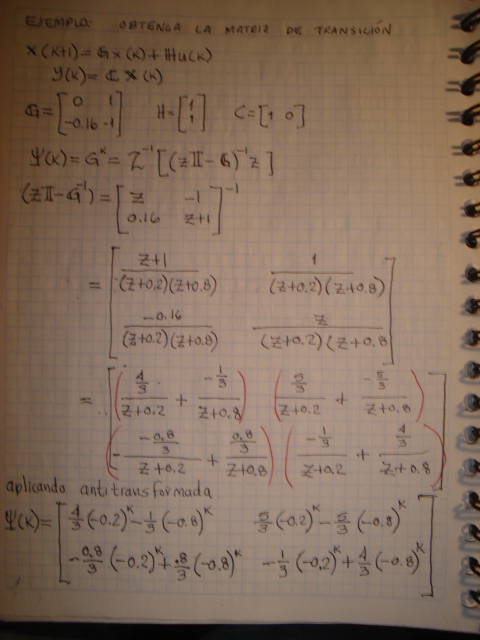 EJEMPLO: OBTENGA LA MATRIZ DE TRANSICIÓN
X(k+1) = G x(k) + H u(k)
Y(k) = C X(k)
G = [0 1; -0.16 -1] H = [1; 1] C = [1 0]
Ψ(k) = G^k = Z^-1 [(zII - G)^-1 z]
(zII - G^-1) = [z -1; 0.16 z+1]^-1
= [z+1/(z+0.2)(z+0.8) 1/(z+0.2)(z+0.8);
-0.16/(z+0.2)(z+0.8) z/(z+0.2)(z+0.8)]
= [(4/3/z+0.2 + -1/3/z+0.8) (5/3/z+0.2 + -5/3/z+0.8);
(-0.8/3/z+0.2 + 0.8/3/z+0.8) (-1/3/z+0.2 + 4/3/z+0.8)]
aplicando antitransformada
Ψ(k) = [4/3 (-0.2)^k - 1/3 (-0.8)^k 5/3 (-0.2)^k - 5/3 (-0.8)^k;
-0.8/3 (-0.2)^k + .8/3 (-0.8)^k -1/3 (-0.2)^k + 4/3 (-0.8)^k]